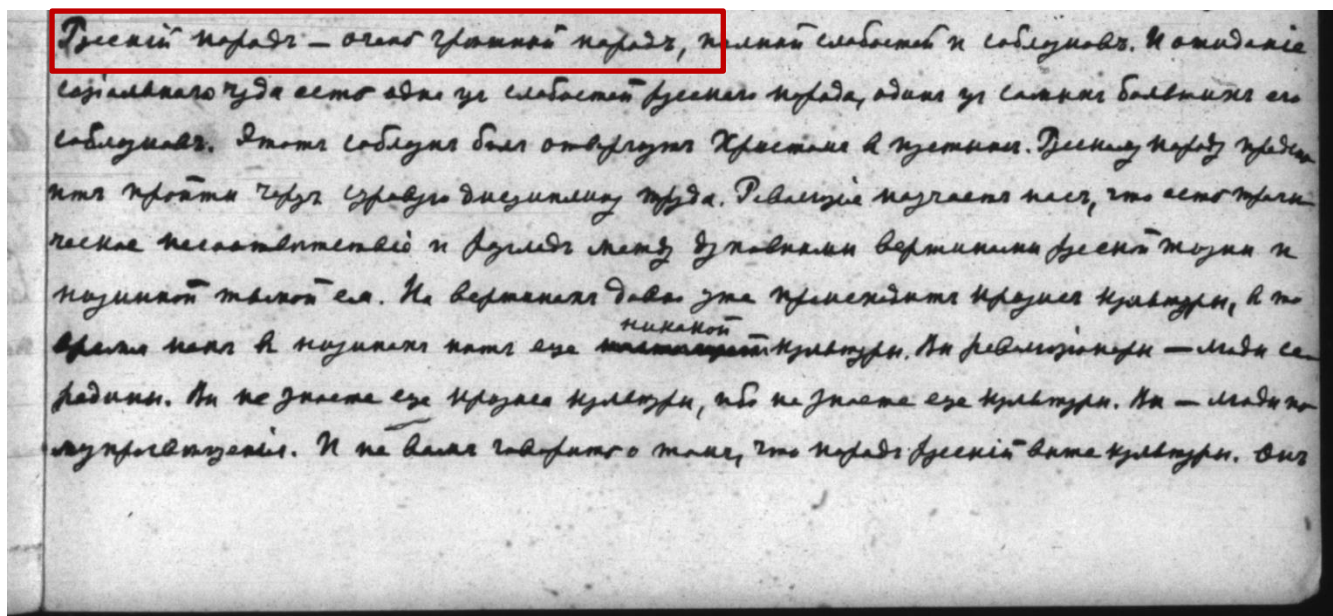 Русскій народъ — очень грѣшный народъ, полный слабостей и соблазновъ. И ожиданіе
соціальнаго чуда есть одна изъ слабостей русскаго народа, одинъ изъ самыхъ большихъ его
соблазновъ. Этотъ соблазнъ былъ отвергнутъ Христомъ в пустынѣ. Русскому народу предсто-
итъ пройти черезъ суровую дисциплину труда. Революція научаетъ насъ, что есть траги-
ческое несоотвѣтствіе и разладъ между духовными вершинами русской жизни и
низинной тьмой ея. На вершинахъ давно уже происходитъ кризисъ культуры, в то
время какъ в низинахъ нѣтъ еще никакой культуры. Вы революціонеры — люди се-
редины. Вы не знаете еще кризиса культуры, ибо не знаете еще культуры. Вы — люди по-
лупросвѣщенія. И не вамъ говорить о томъ, что народъ русскій выше культуры. Онъ